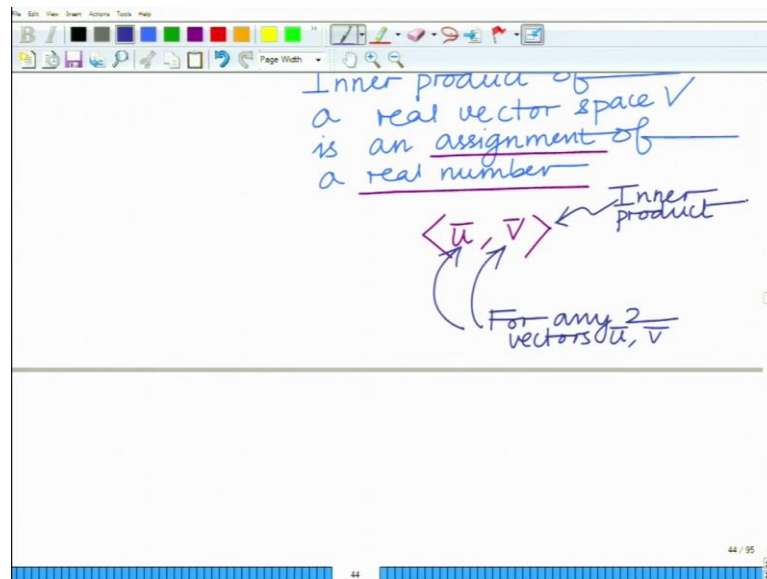 File Edit View Insert Actions Tools Help
B I
Page Width
Inner product of
a real vector space V
is an assignment of
a real number
Inner
product
<u̅, v̅>
For any 2
vectors u̅, v̅
44 / 95
44